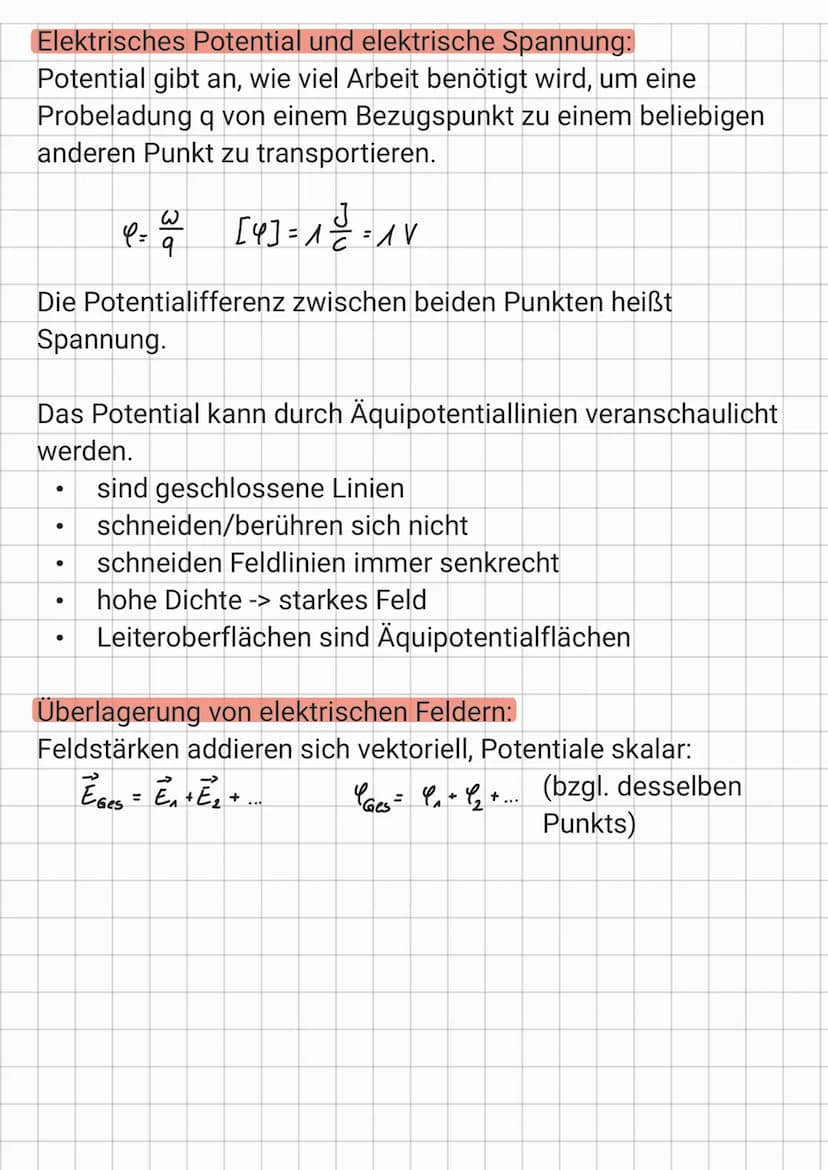 Elektrisches Potential und elektrische Spannung:
Potential gibt an, wie viel Arbeit benötigt wird, um eine
Probeladung q von einem Bezugspunkt zu einem beliebigen
anderen Punkt zu transportieren.
φ = ω/q [φ] = 1 J/C = 1 V
Die Potentialifferenz zwischen beiden Punkten heißt
Spannung.
Das Potential kann durch Äquipotentiallinien veranschaulicht
werden.
• sind geschlossene Linien
• schneiden/berühren sich nicht
• schneiden Feldlinien immer senkrecht
• hohe Dichte -> starkes Feld
• Leiteroberflächen sind Äquipotentialflächen
Überlagerung von elektrischen Feldern:
Feldstärken addieren sich vektoriell, Potentiale skalar:
E⃗Ges = E⃗₁ + E⃗₂ + ... φGes = φ₁ + φ₂ + ... (bzgl. desselben
Punkts)